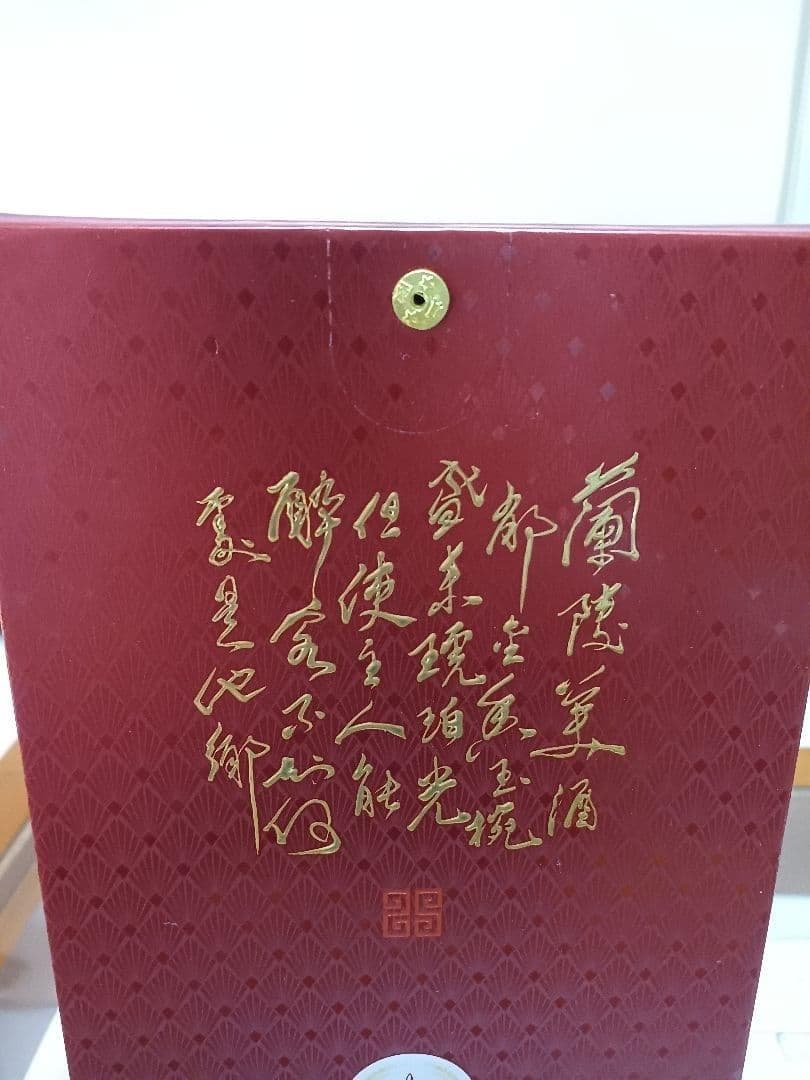 蘭陵美酒
郁金香玉椀
盛来琥珀光
但使主人能
醉客不知何
處是他鄉